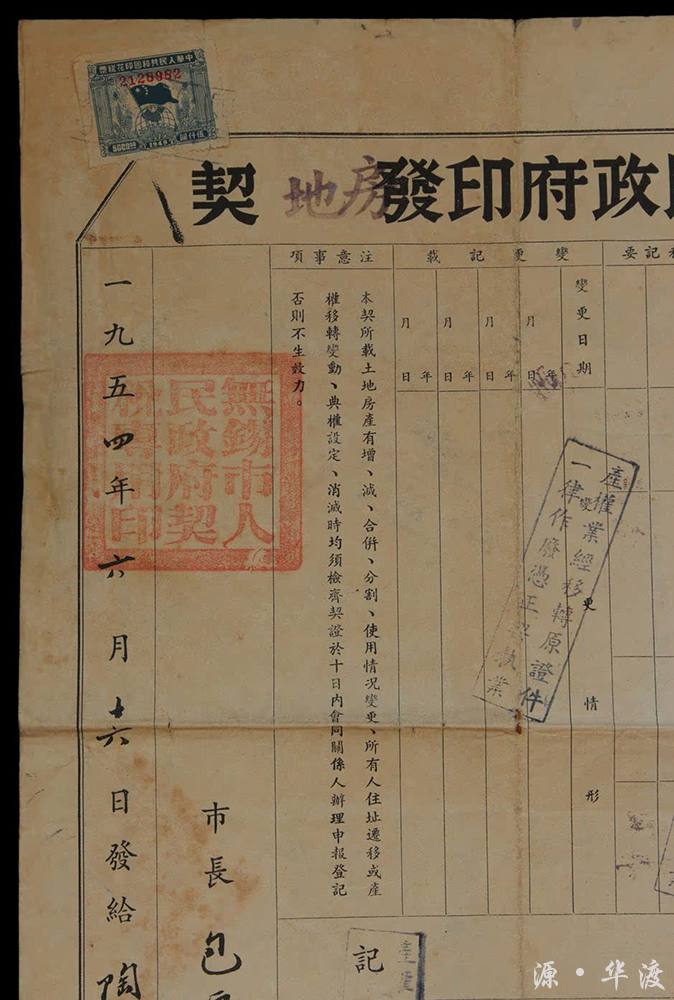 中華人民共和國印花稅票
2128982
5000圓
1949
伍仟圓
民政府印發房地契
要記
變更記載
變更日期
年月日
年月日
年月日
年月日
變更情形
注意事項
本契所載土地房產有增、減、合併、分割、使用情况變更、所有人住址遷移或產
權移轉變動、典權設定、消滅時均須檢齊契證於十日內會同關係人辦理申報登記
否則不生效力。
產業經移轉原證件
一律作廢憑正契執業
產權
無錫市人
民政府契
稅專用印
記
市長 包
一九五四年六月十六日發給陶
源·华渡